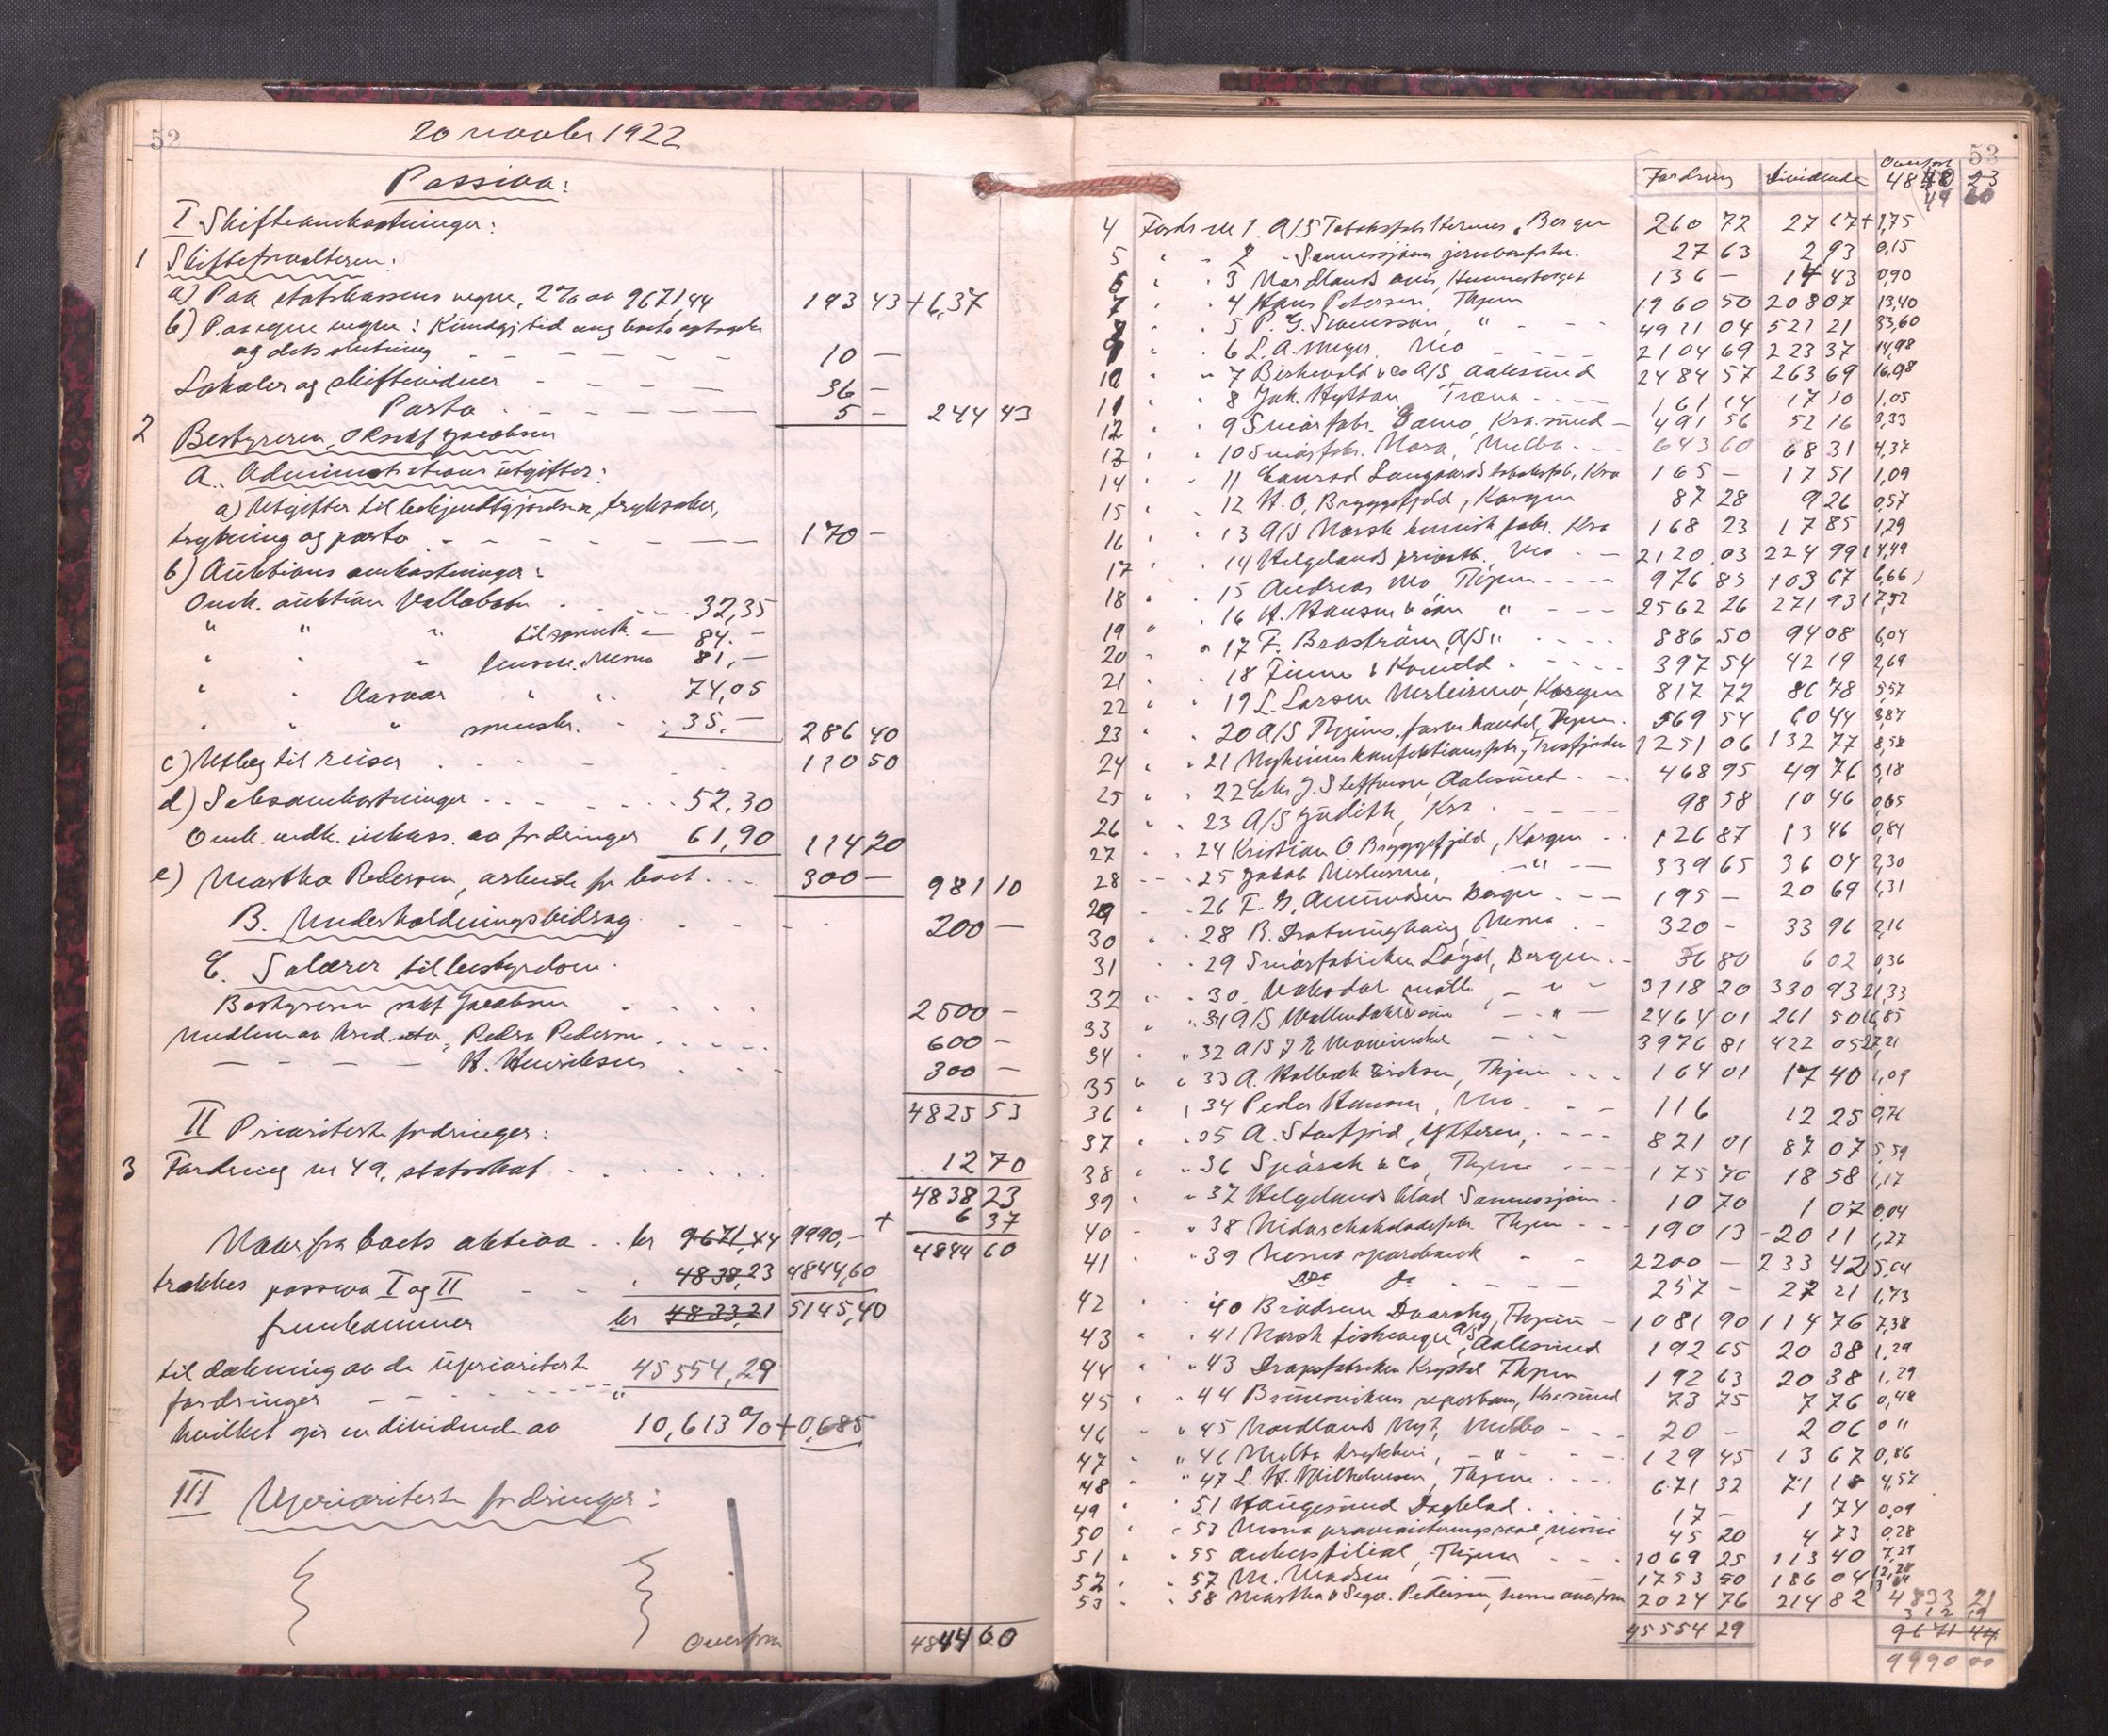 52
20 november 1922
Passiva:
I Skifteomkostninger:
1 Skifteforvalteren:
a) Paa statskassens vegne, 2% av 9671,44 193 43 + 6,37
b) Paa egne vegne: Kundgj. tid ang boets
og dets slutning 10 —
Lokaler og skiftevidner 36 —
Porto 5 — 244 43
2 Bestyreren, O R.sakf Jacobsen
A. Administrationsutgifter:
a) Utgifter til bekjendtgjørelser, tryksaker,
trykning og porto 170 —
b) Auktionsomkostninger:
Omk. auktion 32,35
" " " 84.—
" " " lensm. Nesna 81,—
" " Aasvær " " 74,05
" " " 35.— 286 40
c) Utlæg til reiser 110 50
d) Saksomkostninger 52,30
Omk. vedk. inkass. av fordringer 61,90 114 20
e) Martha Pedersen, arbeide for boet 300 — 981 10
B. Underholdningsbidrag 200 —
C. Salærer til bestyrelsen.
Bestyreren sakf Jacobsen 2500 —
Medlem av kred. utv. Pedersen 600 —
— — — — H. Henriksen 300 —
4825 53
II Prioriterte fordringer:
3 Fordring nr 49, statsskat 12 70
4838 23
+ 6 37
4844 60
Naar fra boets aktiva kr 9671,44 9990,—
trækkes passiva I og II " 4838,23 4844,60
fremkommer kr 4833,21 5145,40
til dækning av de uprioriterte
fordringer " 45554,29
hvilket gir en dividende av 10,613 % + 0,685
III Uprioriterte fordringer:
Overføres 4844 60
53
Fordring dividende Overført 4838 23
4844 60
4 Fordr nr 1. A/S Tobaksfabr Hermes, Bergen 260 72 27 67 + 1,75
5 " " 2 Sannessjøen jernvareforr. 27 63 2 93 0,15
6 " " 3 Nordlands avis, Hemnesberget 136 — 14 43 0,90
7 " 4 Hans Petersen, Thjem 1960 50 208 07 13,40
8 " 5 P. G. Svensson, " 4911 04 521 21 33,60
9 " 6 L. A. Meyer, Mo 2104 69 223 37 14,98
10 " " 7 Birkevold & Co A/S Aalesund 2484 57 263 69 16,98
11 " " 8 Joh. Hyttan Træna 161 14 17 10 1,05
12 " " 9 Smørfabr. Damo, Kr.a.sund 491 56 52 16 3,33
13 " " 10 Smørfabr. Nora, Melbo 643 60 68 31 4,37
14 " " 11 Conrad Langaards tobaksfab, Kra 165 — 17 51 1,09
15 " 12 H. O. Bryggefjeld, Korgen 87 28 9 26 0,57
16 " " 13 A/S Norsk kemisk fabr. Kra 168 23 17 85 1,29
17 " " 14 Helgelands privatb. Mo 2120 03 224 99 14,49
18 " " 15 Andreas Mo, Thjem 976 85 103 67 6,66
19 " " 16 H. Hansen & søn " 2562 26 271 93 17,52
20 " " 17 F. Brostrøm A/S " 886 50 94 08 6,04
21 " " 18 Finne & Konvold 397 54 42 19 2,69
22 " " 19 L. Larsen Nerleirmo, Korgen 817 72 86 78 5,57
23 " " 20 A/S Thjems. farvehandel, Thjem 569 54 60 44 3,87
24 " " 21 Myhrens konfektionsfabr, Tresfjorden 1251 06 132 77 8,58
25 " " 22 Chr J. Steffensen, Aalesund 468 95 49 76 3,18
26 " " 23 A/S Judith, Kra 98 58 10 46 0,65
27 " " 24 Kristian O Bryggefjeld, Korgen 126 87 13 46 0,84
28 " " 25 Jakob Nerleirmo, " 339 65 36 04 2,30
29 " " 26 F. G. Amundsen Bergen 195 — 20 69 1,31
30 " " 28 R. Dronninghaug, Nesna 320 — 33 96 2,16
31 " " 29 Smørfabriken Løyd, Bergen 56 80 6 02 0,36
32 " " 30. Vaksdal mølle, " 3118 20 330 93 21,33
33 " " 31 A/S Wallendahl & søn " 2464 01 261 50 16,85
34 " " 32 A/S J E Mowinckel 3976 81 422 05 27,21
35 " " 33 A. Holbæk Eriksen, Thjem 164 01 17 40 1,09
36 " " 34 Peder Hansen, Mo 116 12 25 0,76
37 " " 35 A. Storfjord, Ytteren, 821 01 87 07 5,59
38 " " 36 Spørck & Co, Thjem 175 70 18 58 1,17
39 " " 37 Helgelands blad Sannessjøen 10 70 1 07 0,04
40 " " 38 Nidar chokoladefabr. Thjem 190 13 20 11 1,27
41 " " 39 Nesna sparebank 2200 — 233 42 15,04
Do do 257 — 27 21 1,73
42 " " 40 Brødrene Dvorsky, Thjem 1081 90 114 76 7,38
43 " " 41 Norsk fiskevegn A/S, Aalesund 192 65 20 38 1,29
44 " " 43 Dropsfabriken Krystal Thjem 192 63 20 38 1,29
45 " " 44 Brunvikens reperbane, Kr.a.sund 73 75 7 76 0,48
46 " " 45 Nordlands Nyt, Melbo 20 — 2 06 0 11
47 " " 46 Melbo trykkeri, " 129 45 13 67 0,86
48 " " 47 L. H. Wilhelmsen, Thjem 671 32 71 18 4,57
49 " " 51 Haugesund Dagblad 17 — 1 74 0,09
50 " " 53 Nesna provianteringsraad, Nesna 45 20 4 73 0,28
51 " " 55 Ankers filial, Thjem 1069 25 113 40 7,29
52 " " 57 M. Madsen " 1753 50 186 04 12,28
53 " " 58 Martha & Segel. Pedersen, Nesna 2024 76 214 82 13 84 4833 21
312 19
45554 29 9671 44
9990 00